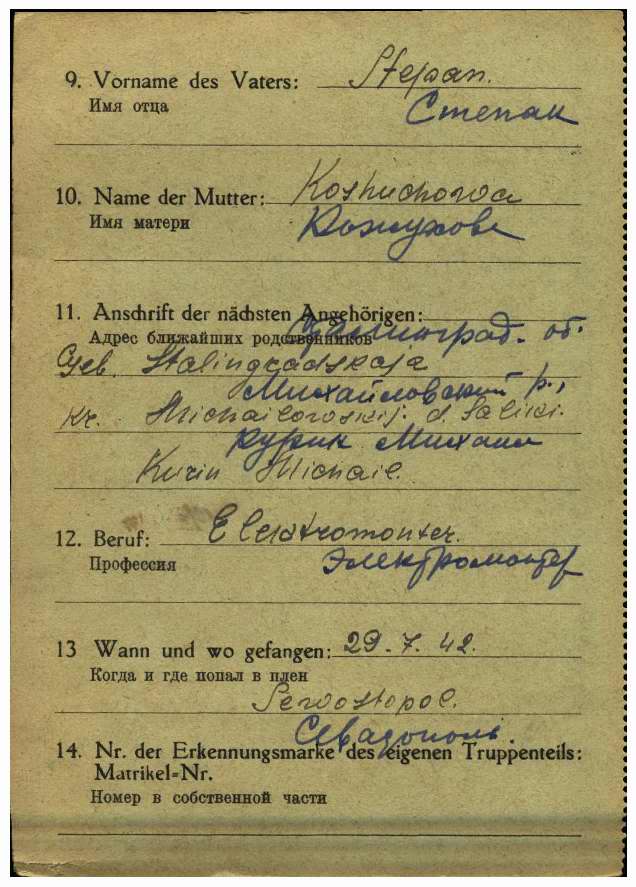 9. Vorname des Vaters: Stepan.
Имя отца Степан
10. Name der Mutter: Koshuchowa
Имя матери Кожухова
11. Anschrift der nächsten Angehörigen:
Адрес ближайших родственников Сталинград. об.
Geb. Stalingradskaja
Михайловский р.,
Kr. Michailowskij. d.
Курин Михаил
Kurin Michail.
12. Beruf: Elektromonter.
Профессия Электромонтер
13 Wann und wo gefangen: 29.7.42.
Когда и где попал в плен
Sewostopol.
Севастополь.
14. Nr. der Erkennungsmarke des eigenen Truppenteils:
Matrikel=Nr.
Номер в собственной части